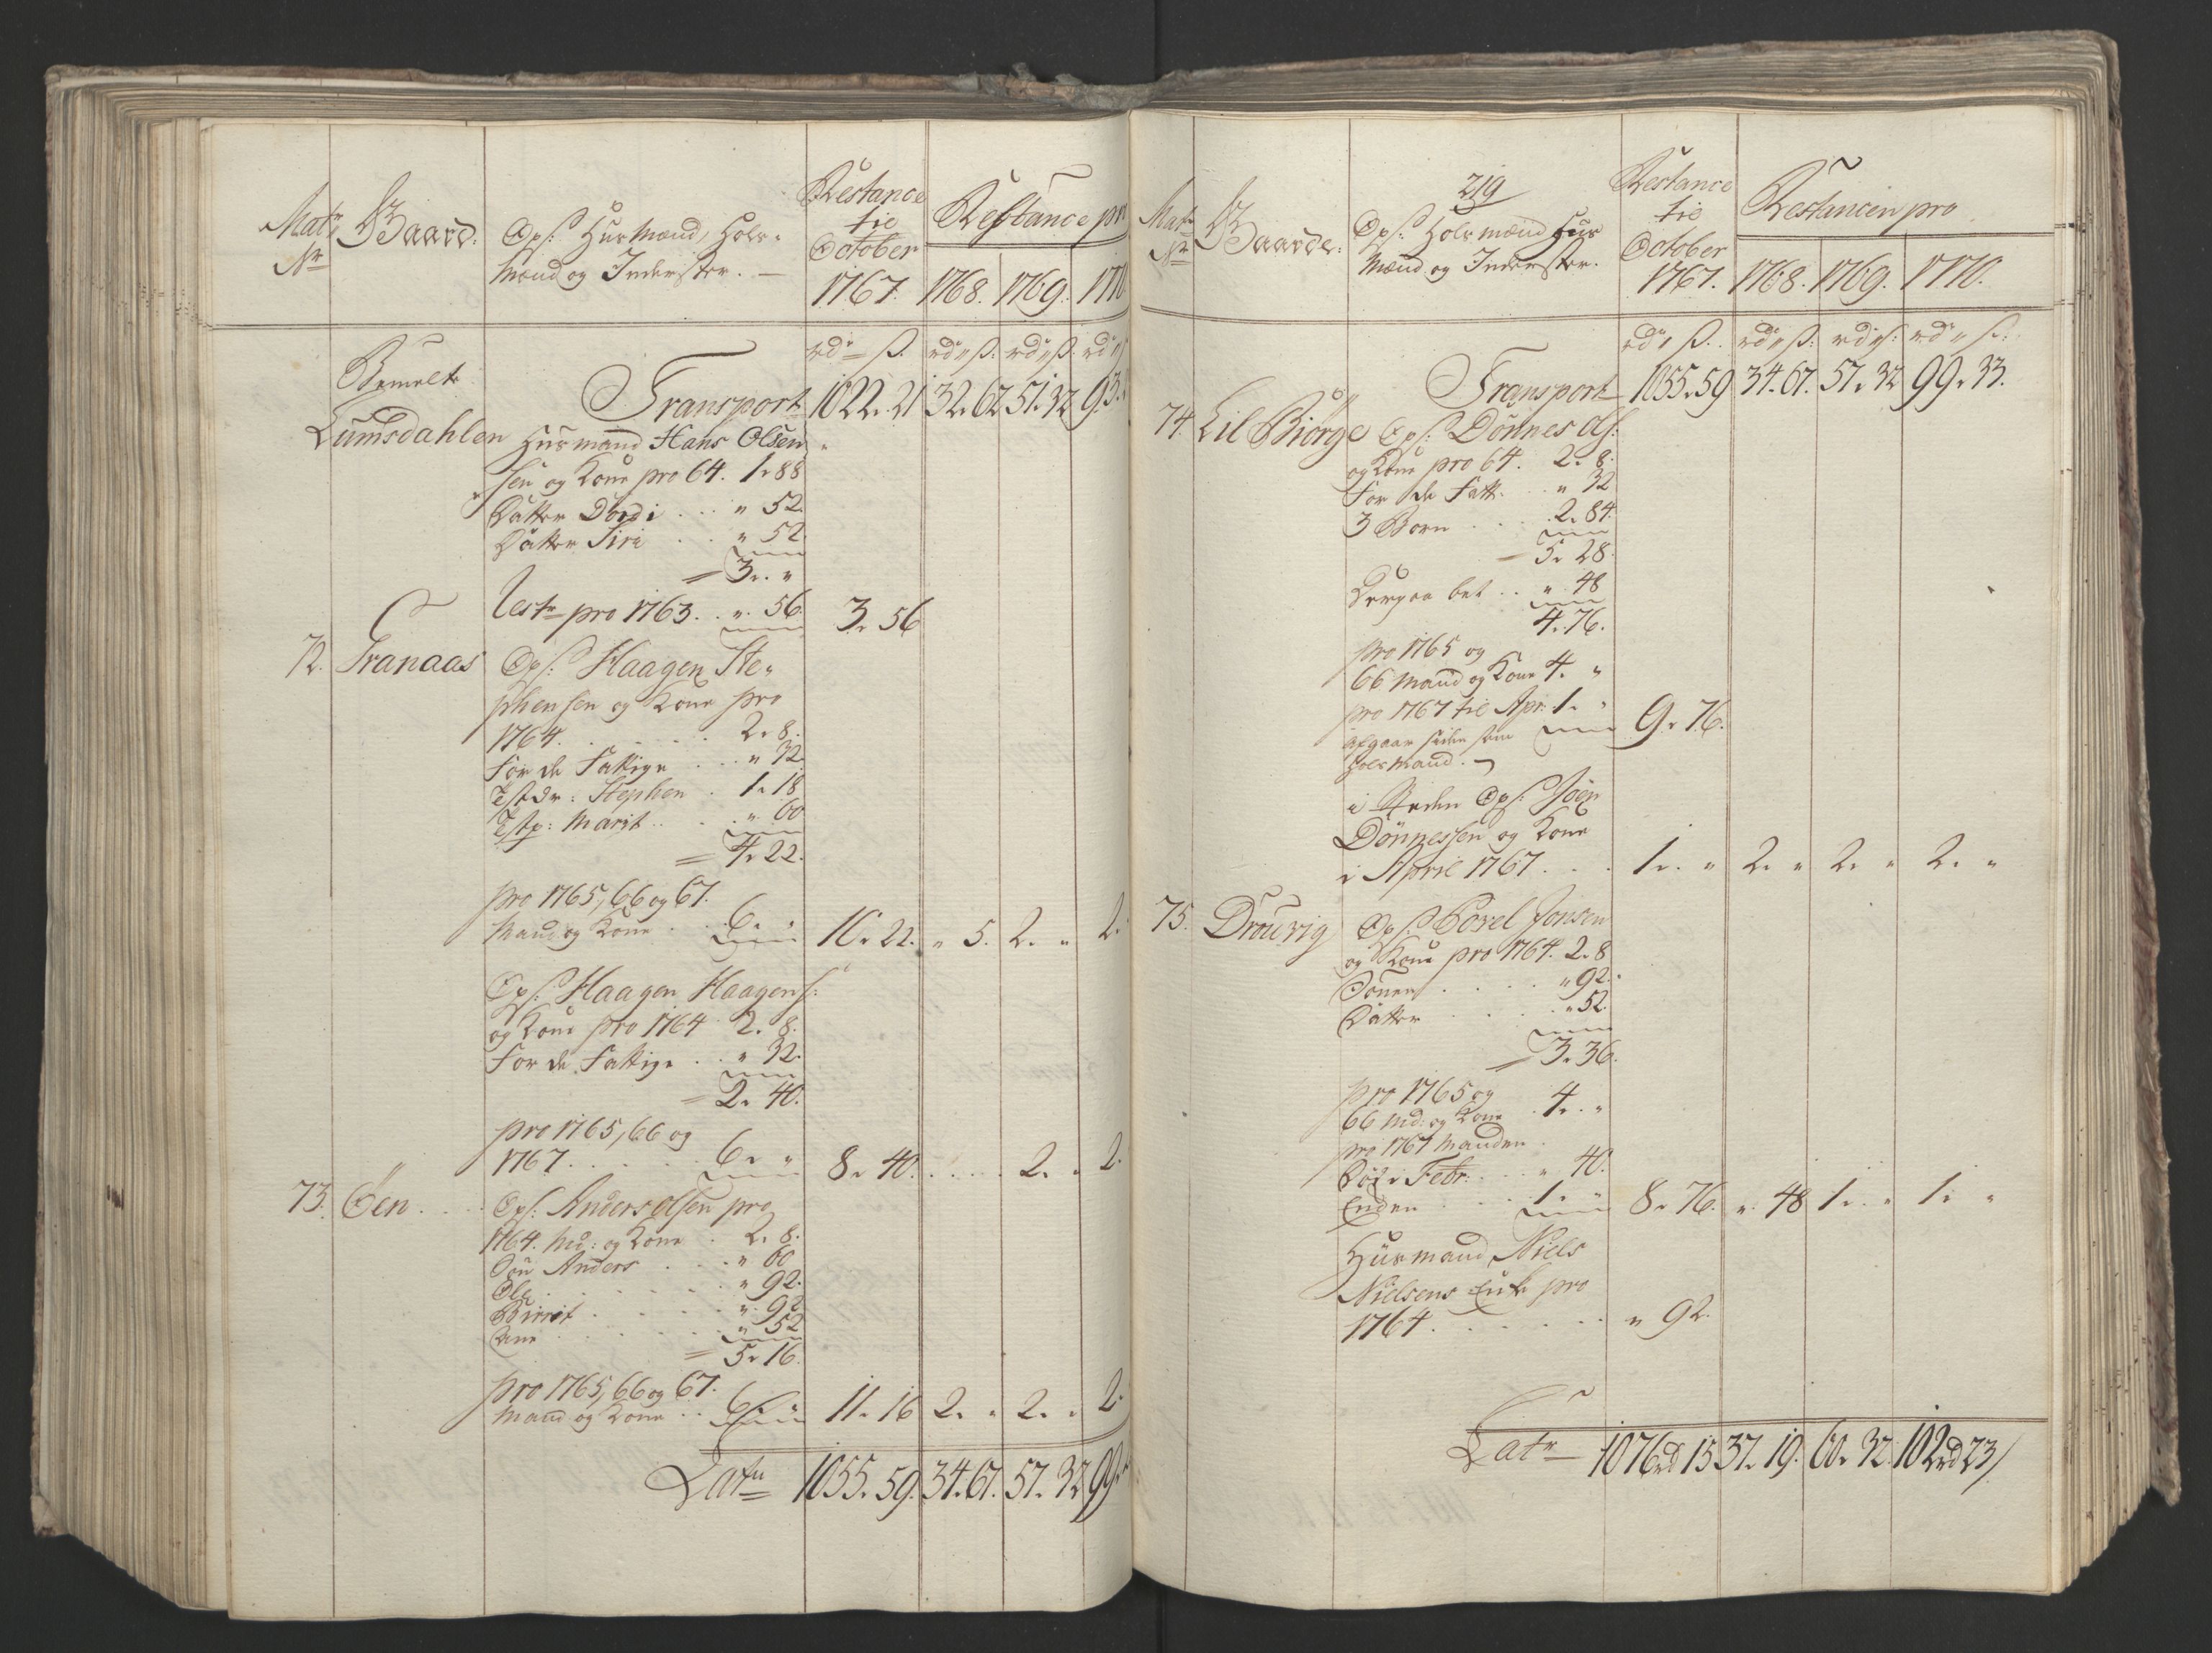 Matr. Nr.
Gaard.
Ops: Husmænd, Hols-
mænd og Inderster. —
Restance
til
October
1767.
Restance pro
1768. 1769. 1770
rd " s. rd " s. rd " s. rd "
Bemelte
Lumsdahlen
Transport 1022. 21 32. 62 51. 32 93.
Husmand Hans Olsen
sen og Kone pro 64. 1. 88
Datter Dordi . . . " 52.
Datter Siri . . . " 52.
= 3. "
Rest pro 1763. . " 56. 3. 56
72. Granaas Ops: Haagen Ste-
phensen og Kone pro
1764. . . . . . 2. 8.
For de Fattige . . . " 32
Tstdr: Stephen . 1. 18
Tstp: Marit . . . " 60
= 4. 22.
pro 1765, 66 og 67.
Mand og Kone . . 6. " 10. 22. " 5. 2. " 2.
Ops: Haagen Haagens:
og Kone pro 1764 2. 8.
For de Fattige . . " 32.
= 2. 40.
pro 1765, 66 og
1767. . . . . . 6. " 8. 40. . . . . 2. " 2.
73. Øen . . . Ops: Anders Olsen pro
1764. Md: og Kone . 2. 8.
Søn Anders . . . " 60
Ole . . . . . . " 92.
Birrit . . . . . " 92
Ane . . . . . . " 52
= 5. 16.
pro 1765, 66 og 67.
Mand og Kone . . 6. " 11. 16 2. " 2. " 2.
Latr 1055. 59. 34. 67. 57. 32 99.
219
Matr. Nr.
Gaarde.
Ops: Holsmænd Hus
mænd og Inderster.
Restance
til
October
1767.
Restancen pro
1768. 1769. 1770.
rd " s. rd " s: rd " s: rd " s:
Transport 1055. 59 34. 67. 57. 32 99. 33.
74. Lil Biørge Ops: Dønnes Ols:
og Kone pro 64. 2. 8.
For de Fatt. . . " 32
3 Børn . . . . 2. 84.
= 5. 28.
Derpaa bet . . " 48
4. 76.
pro 1765 og
66 Mand og Kone 4. "
pro 1767 til Apr: 1. "
afgaar siden som 9. 76.
Holsmand.
i Steden Ops: Joen
Dønnessen og Kone
i April 1767. . . 1. " 2. " 2. " 2. "
75. Drouvig Ops: Povel Jonsen
og Kone pro 1764. 2. 8
Sønen . . . . . " 92.
Datter . . . . . " 52.
= 3. 36.
pro 1765 og
66 Md: og Kone . 4. "
pro 1767 Manden .
Død i Febr: . . . " 40.
Enken . . . 1. " 8. 76. " 48 1. " 1. "
Husmand Niels
Nielsens Enke pro
1764. . . . . . . " 92.
Latr 1076 rd 15 37. 19. 60. 32. 102 rd 23 s